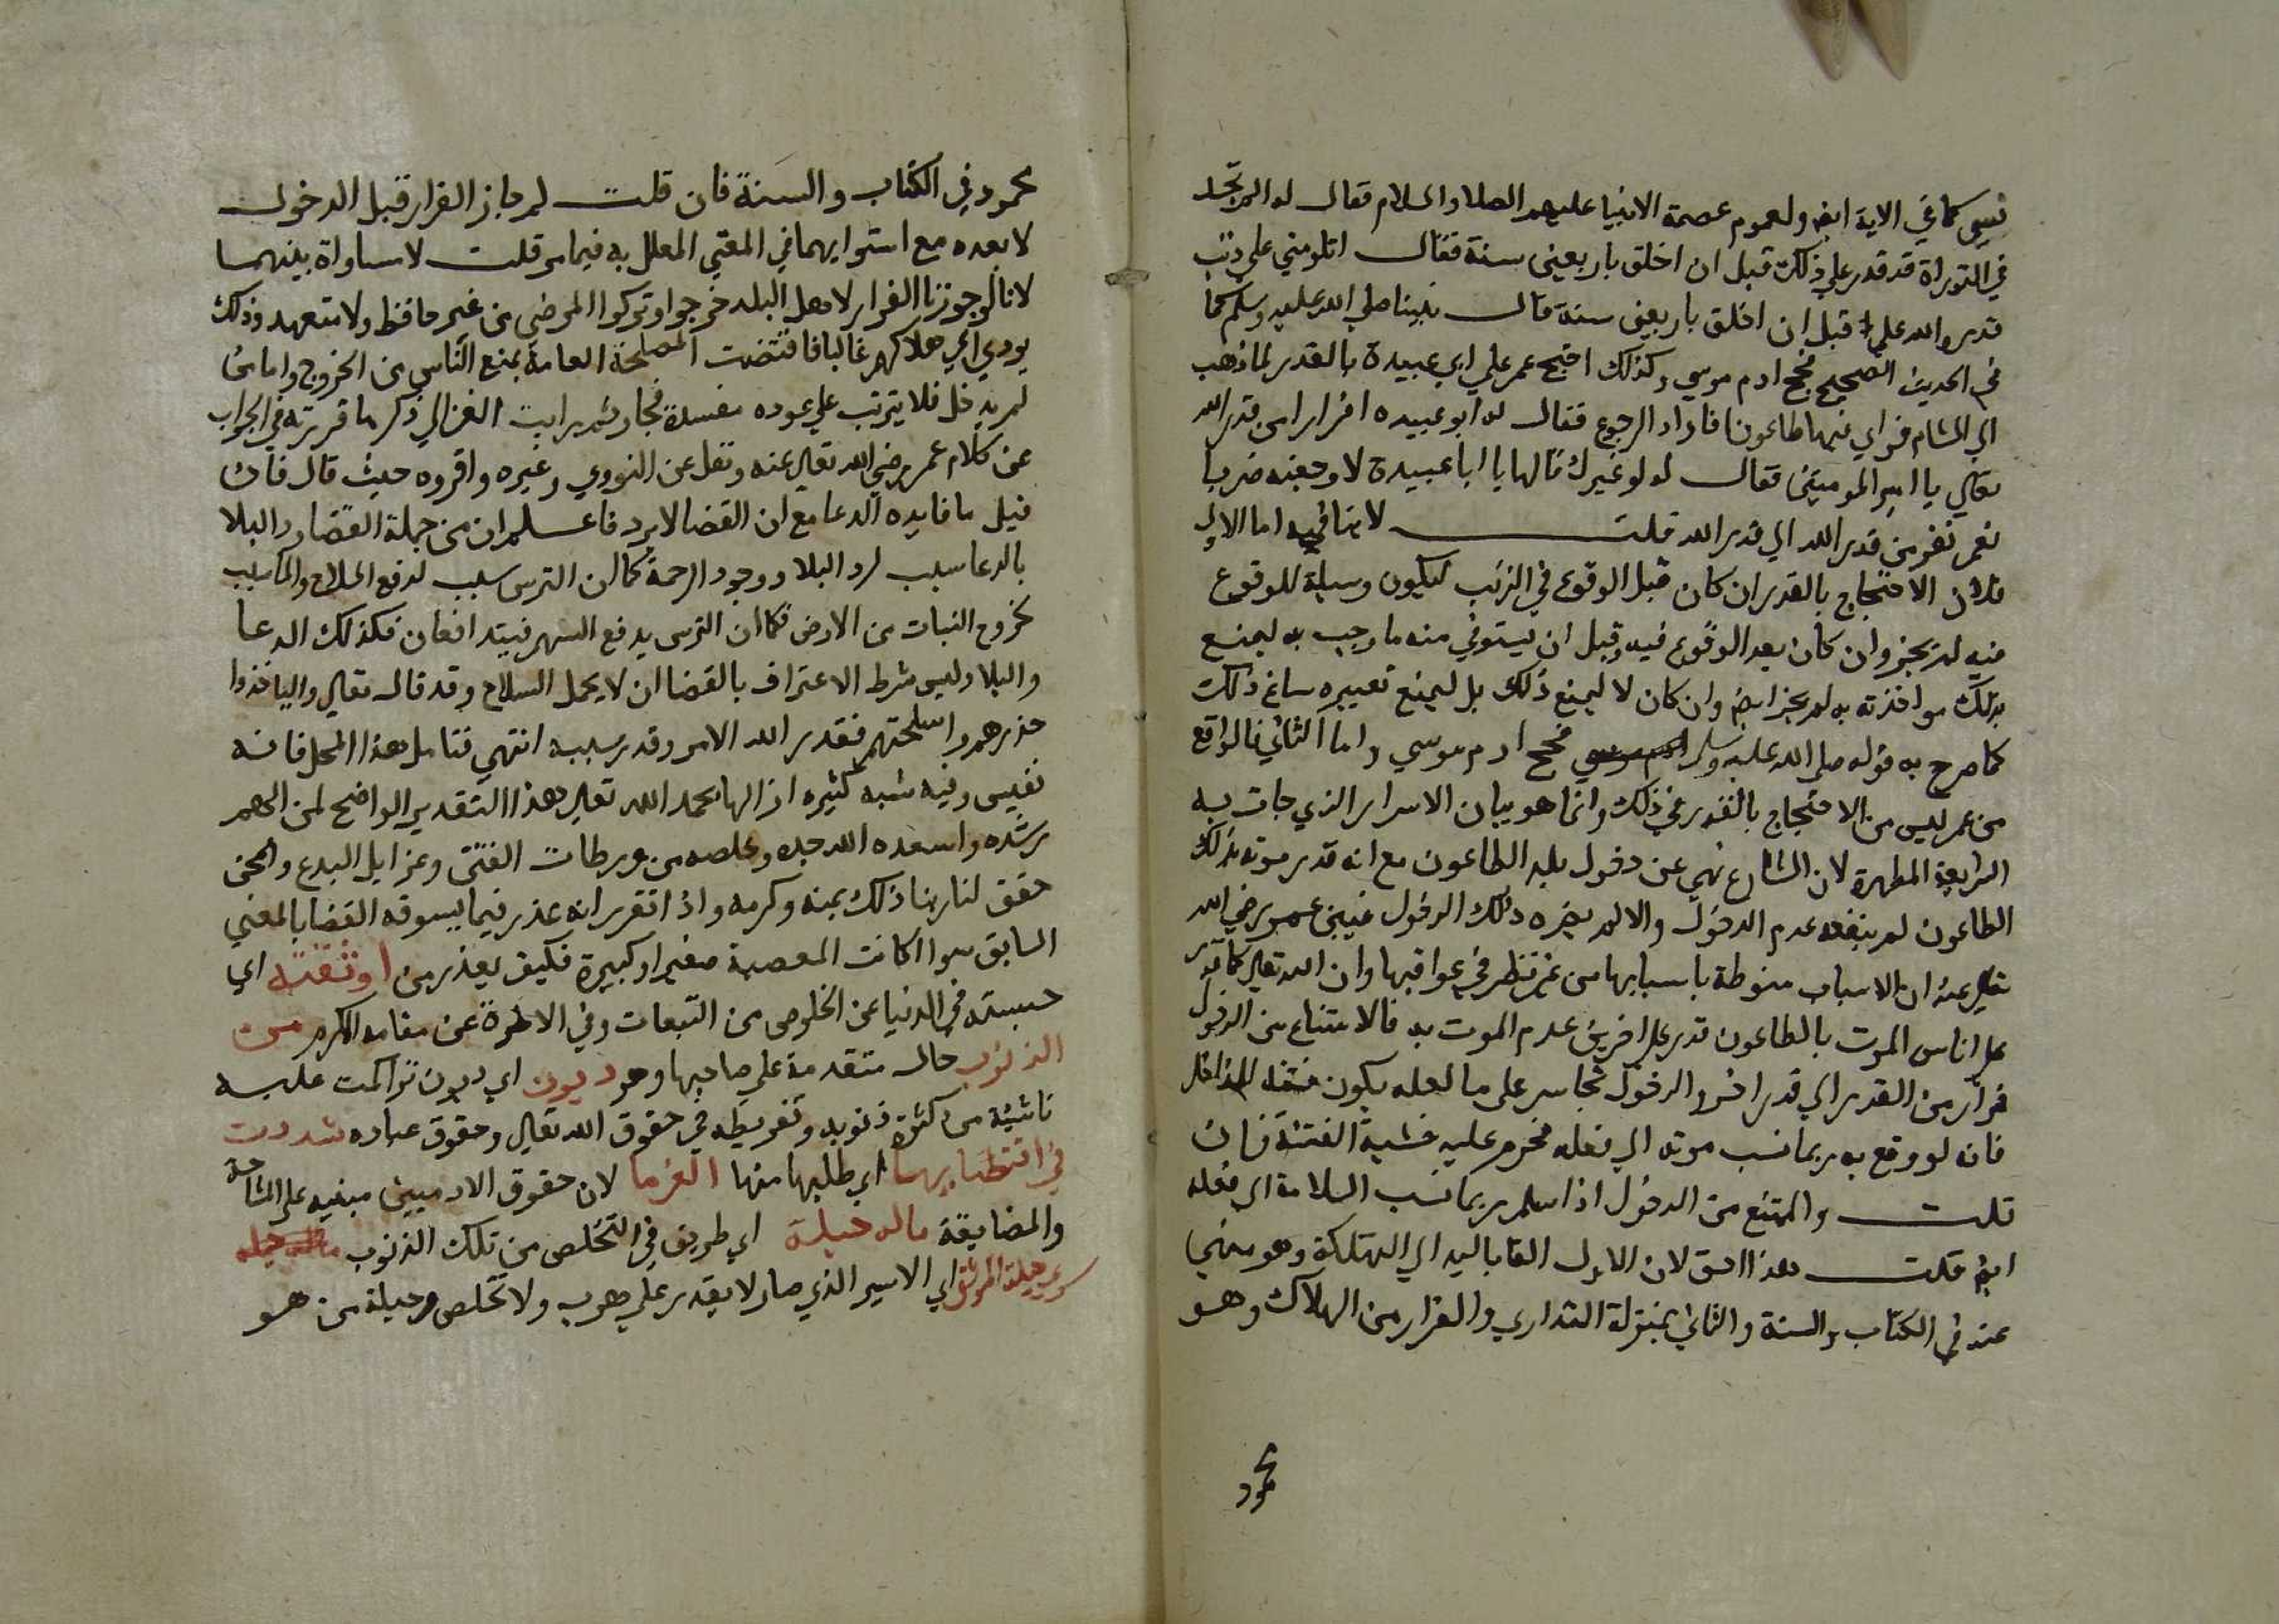 نسي كما في الاية ايض ولعموم عصمة الانبيا عليهم الصلاة والسلام فقال له الم تجد
في التوراة قد قدر علي ذلك قبل ان اخلق باربعين سنة فقال اتلومني علي ذنب
قدره الله علي قبل ان اخلق باربعين سنة قال نبينا صلي الله عليه وسلم كما
في الحديث الصحيح فحج ادم موسي وكذلك احتج عمر علي ابي عبيدة بالقدر لما ذهب
الي الشام فراي فيها طاعونا فاراد الرجوع فقال له ابو عبيده افرارا من قدر الله
تعالي يا امير المومنين فقال له لو غيرك قالها يا ابا عبيدة لاوجعته ضربا
نعم نفر من قدر الله الي قدر الله قلت لا ينافيه اما الاول
فلان الاحتجاج بالقدر ان كان قبل الوقوع في الذنب ليكون وسيلة للوقوع
فيه لم يجز وان كان بعد الوقوع فيه وقبل ان يستوفي منه ما وجب به ليمنع
بذلك مواخذته به لم يجز ايض وان كان لا ليمنع ذلك بل ليمنع تعييره ساغ ذلك
كما صرح به قوله صلي الله عليه وسلم فحج ادم موسي واما الثاني فالواقع
من عمر ليس من الاحتجاج بالقدر في ذلك وانما هو بيان الاسرار الذي جات به
الشريعة المطهرة لان الشارع نهي عن دخول بلد الطاعون مع انه قدر موته بذلك
الطاعون لم ينفعه عدم الدخول والا لم يضره ذلك الدخول فبين عمر رضي الله
تعالي عنه ان الاسباب منوطة باسبابها من غير نظر في عواقبها وان الله تعالي كما قدر
علي اناس الموت بالطاعون قدر علي اخرين عدم الموت به فالامتناع من الدخول
فرار من القدر الي قدر اخر والدخول تجاسر على ما لعله يكون
فانه لو وقع به ربما نسب موته الي فعله فحرم عليه خشية الفتنة فان
قلت والممتنع من الدخول اذا سلم ربما نسب السلامة الي فعله
ايض قلت هذا احق لان الاول القا باليد الي التهلكة وهو منهي
عنه في الكتاب والسنة والثاني بمنزلة التداوي والفرار من الهلاك وهو
محمود
محمود في الكتاب والسنة فان قلت لم جاز الفرار قبل الدخول
لا بعده مع استوايهما في المعني المعلل به فيما مر قلت لا مساواة بينهما
لانا لو جوزنا الفرار لاهل البلد خرجوا وتركوا المرضي من غير حافظ ولا متعهد وذلك
يودي الي هلاكهم غالبا فاقتضت المصلحة العامة بمنع الناس من الخروج واما من
لم يدخل فلا يترتب علي عوده مفسدة فجاز ثم رايت الغزالي ذكر ما قررته في الجواب
عن كلام عمر رضي الله تعالي عنه ونقل عن النووي وغيره واقروه حيث قال فان
قيل ما فايده الدعا مع ان القضا لا يرد فاعلم ان من جملة القضا رد البلا
بالدعا سبب لرد البلا ووجود الرحمة كما ان الترس سبب لدفع السلاح والما سبب
لخروج النبات من الارض فكما ان الترس يدفع السهم فيتدافعان فكذلك الدعا
والبلا وليس شرط الاعتراف بالقضا ان لا يحمل السلاح وقد قال تعالي وليأخذوا
حذرهم واسلحتهم فقدر الله الامر وقدر سببه انتهي فتامل هذا المحل فانه
نفيس وفيه شبه كثيره ازالها بحمد الله تعالي هذا التقدير الواضح لمن الهم
رشده واسعده الله جده وخلصه من ورطات الفتن وغزايل البدع والمحن
حقق لنا ربنا ذلك بمنه وكرمه واذا تقرر انه عذر فيما يسوقه القضا بالمعني
السابق سوا كانت المعصية صغيرا وكبيرة فكيف يعذر من اوثقته اي
حبسته في الدنيا عن الخلوص من التبعات وفي الاخرة عن مقامه الاكرم من
الذنوب حال متقدمة علي صاحبها وهو ديون اي ديون تراكمت عليه
ناشئة من كثرة ذنوبه وتفريطه في حقوق الله تعالي وحقوق عباده شددت
في اقتضايها اي طلبها منها الغرما لان حقوق الادميين مبنيه علي المشاحة
والمضايقة ماله حيلة اي طريق في التخلص من تلك الذنوب ماله حيله
سوي حيلة الموثق اي الاسير الذي صار لا يقدر علي هرب ولا تخلص وحيلة من هو